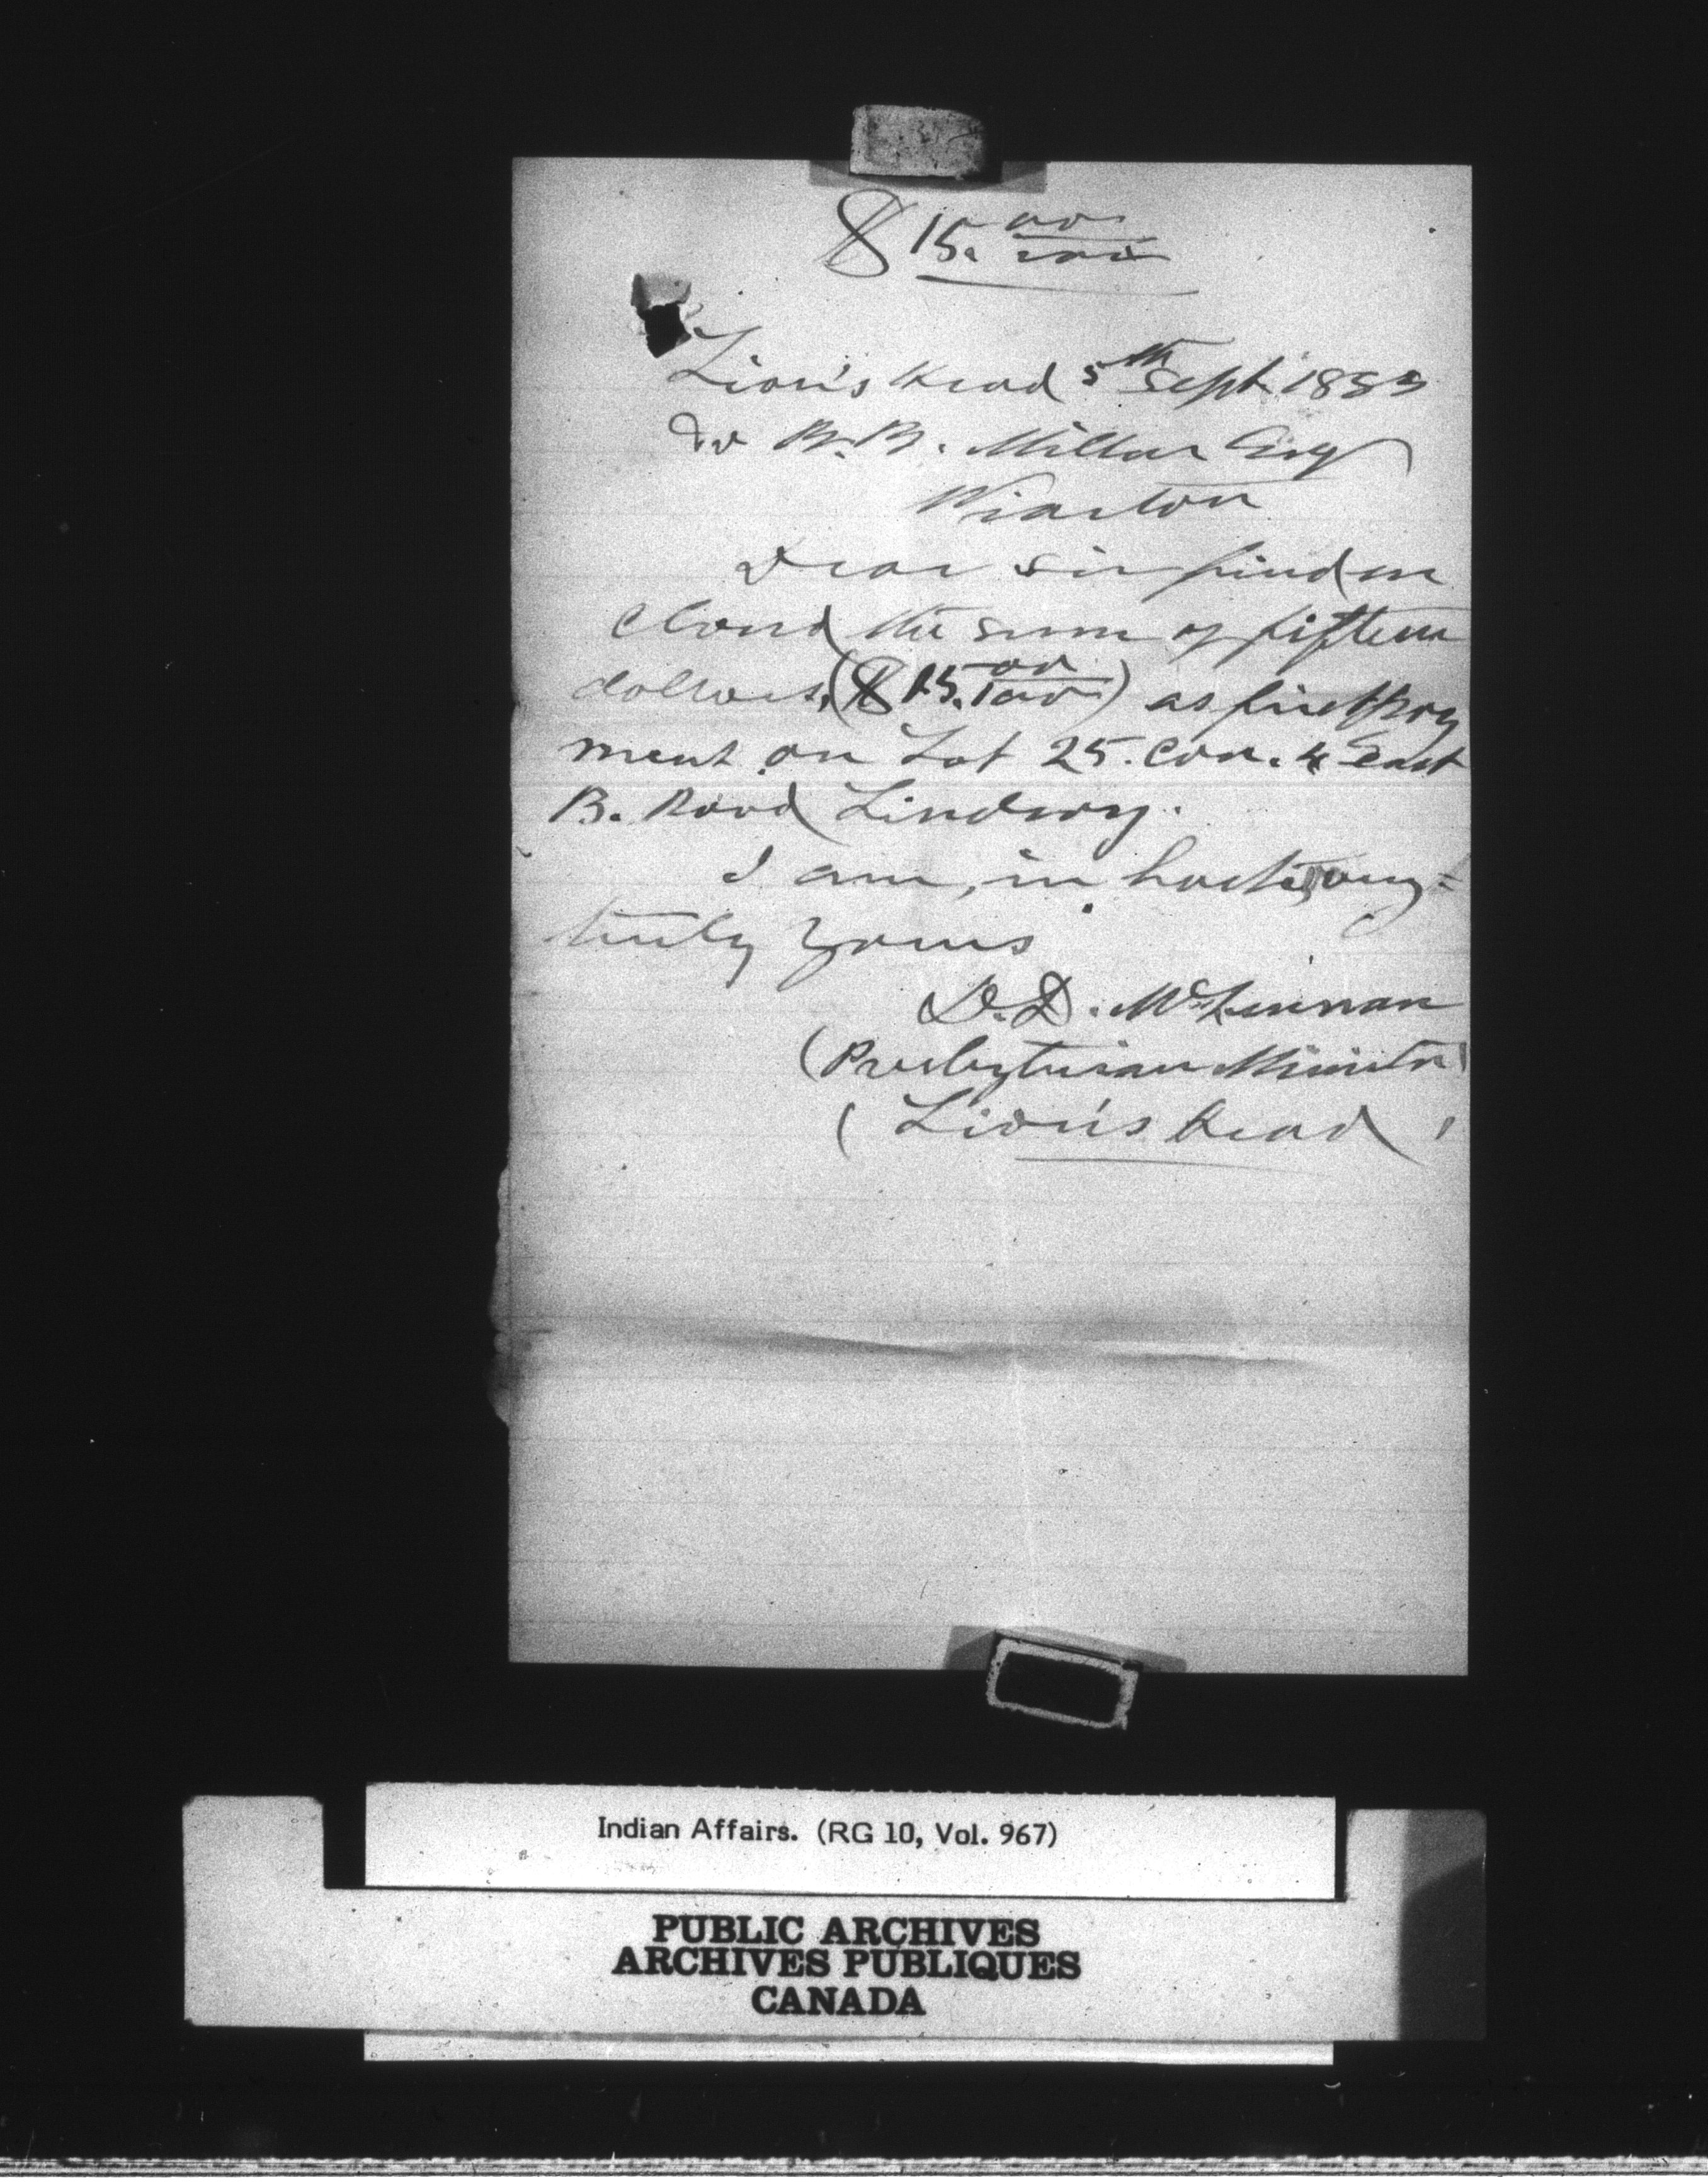 $15. 00/100
Lion's Head 5th Sept. 1883
To B. B. Millar Esq
Wiarton
Dear Sir find en
closed the sum of fifteen
dollars, ($15. 00/100) as first pay
ment on Lot 25. Con. 4 East
B. Road Lindsay.
I am, in haste,
truly yours
D. D. McLennan
(Presbyterian Minister)
(Lion's Head)
Indian Affairs. (RG 10, Vol. 967)
PUBLIC ARCHIVES
ARCHIVES PUBLIQUES
CANADA